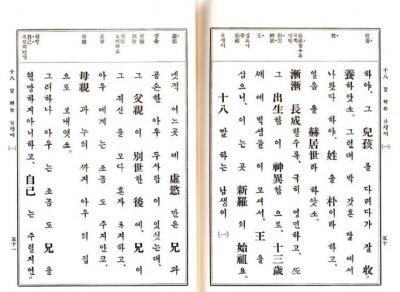 收養
姓
하야, 그 兒孩를 다려다가 잘 收
養하얏소. 그런대 박 갓흔 알에서
나왓다 하야, 姓을 朴이라 하고,
일홈을 赫居世라 하얏소.
漸漸 長成할수록, 극히 영민하고, 또
그 出生이 神異함으로, 十三歲
때에 백성들이 모셔서, 王을
삼으니, 이는 곳 新羅의 始祖요.
十八 말 하는 남생이 (一)
五十
虛慾
공손
母親
自己
녯적 어느곳에 虛慾 만은 兄과
공손한 아우 두 사람이 잇섯는대,
그 父親이 別世한 後에, 兄이
그 재산을 모다 혼자 차지하고,
아우에게는 조곰도 주지안코,
母親과 누의까지 아우의 집
으로 보내엿소.
그러하나 아우는 조곰도 兄을
원망하지아니하고, 自己는 주릴지언
十八 말 하는 남생이 (一)
五十一